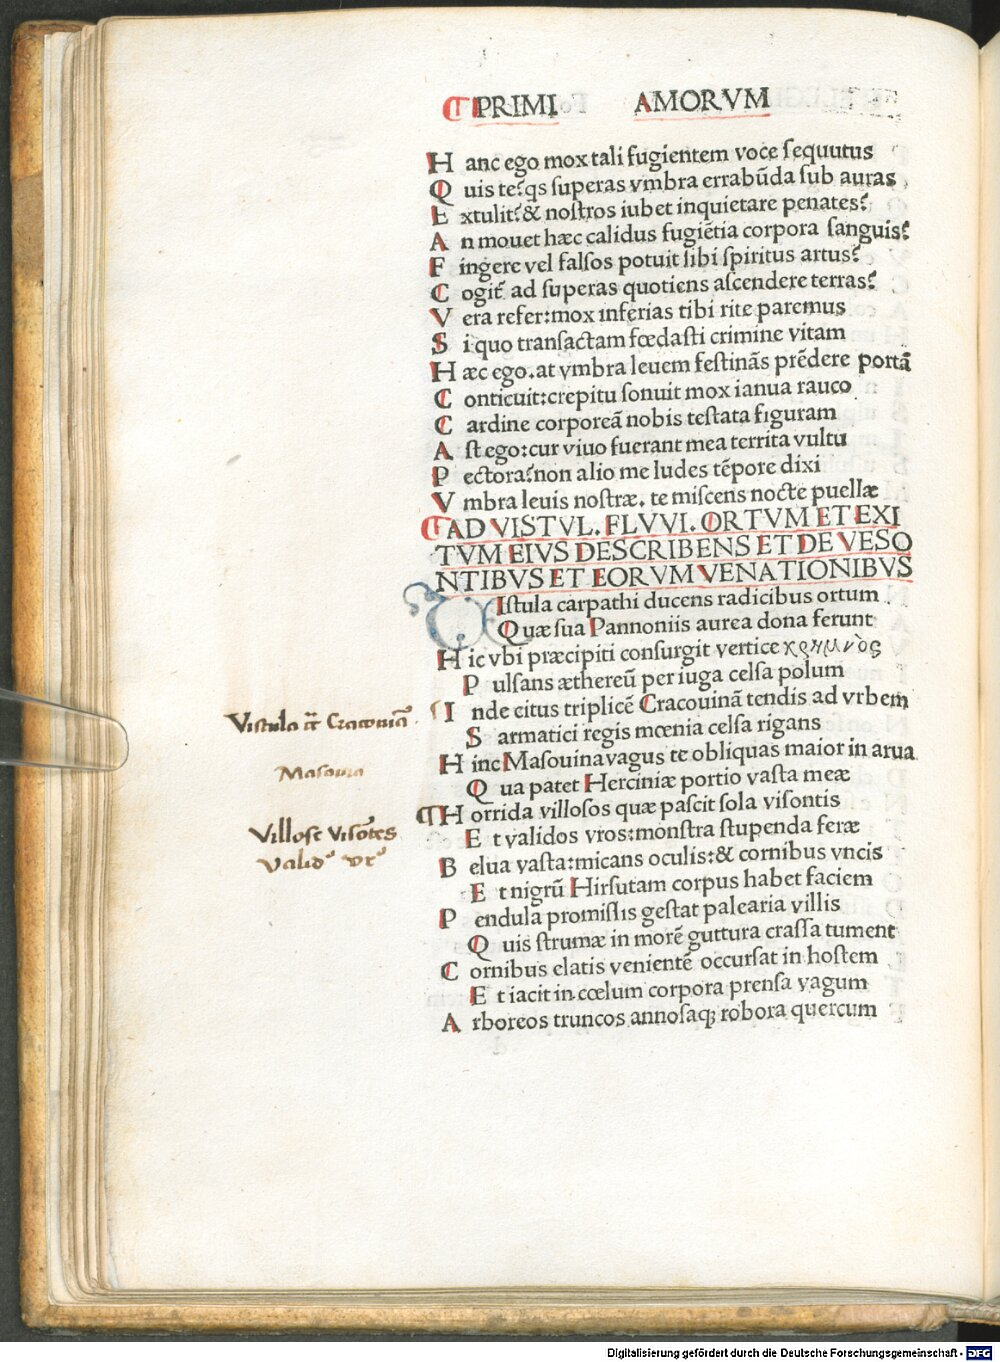 PRIMI AMORVM
Hanc ego mox tali fugientem voce ſequutus
Quis te?qs ſuperas vmbra errabūda ſub auras
Extulit?& noſtros iubet inquietare penates?
An mouet hæc calidus fugiētia corpora ſanguis?
Fingere vel falſos potuit ſibi ſpiritus artus?
Cogit ad ſuperas quotiens aſcendere terras?
Vera refer:mox inferias tibi rite paremus
Si quo tranſactam fœdaſti crimine vitam
Hæc ego.at vmbra leuem feſtinās prēdere portā
Conticuit:crepitu ſonuit mox ianua rauco
Cardine corporeā nobis teſtata figuram
Aſt ego:cur viuo fuerant mea territa vultu
Pectora?non alio me ludes tēpore dixi
Vmbra leuis noſtræ. te miſcens nocte puellæ
AD VISTVL. FLVVI. ORTVM ET EXI
TVM EIVS DESCRIBENS ET DE VESO
NTIBVS ET EORVM VENATIONIBVS
VIſtula carpathi ducens radicibus ortum
Quæ ſua Pannoniis aurea dona ferunt
Hic vbi præcipiti conſurgit vertice κρημνὸς
Pulſans æthereū per iuga celſa polum
Inde citus triplicē Cracouinā tendis ad vrbem
Sarmatici regis mœnia celſa rigans
Hinc Maſouina vagus te obliquas maior in arua
Qua patet Herciniæ portio vaſta meæ
Horrida villoſos quæ paſcit ſola viſontis
Et validos vros:monſtra ſtupenda feræ
Belua vaſta:micans oculis:& cornibus vncis
Et nigrū Hirſutam corpus habet faciem
Pendula promiſſis geſtat palearia villis
Quis ſtrumæ in morē guttura craſſa tument
Cornibus elatis venientē occurſat in hoſtem
Et iacit in cœlum corpora prenſa vagum
Arboreos truncos annoſaqꝫ robora quercum
Vistula
Masouia
Villose Visōtes
Digitalisierung gefördert durch die Deutsche Forschungsgemeinschaft - DFG